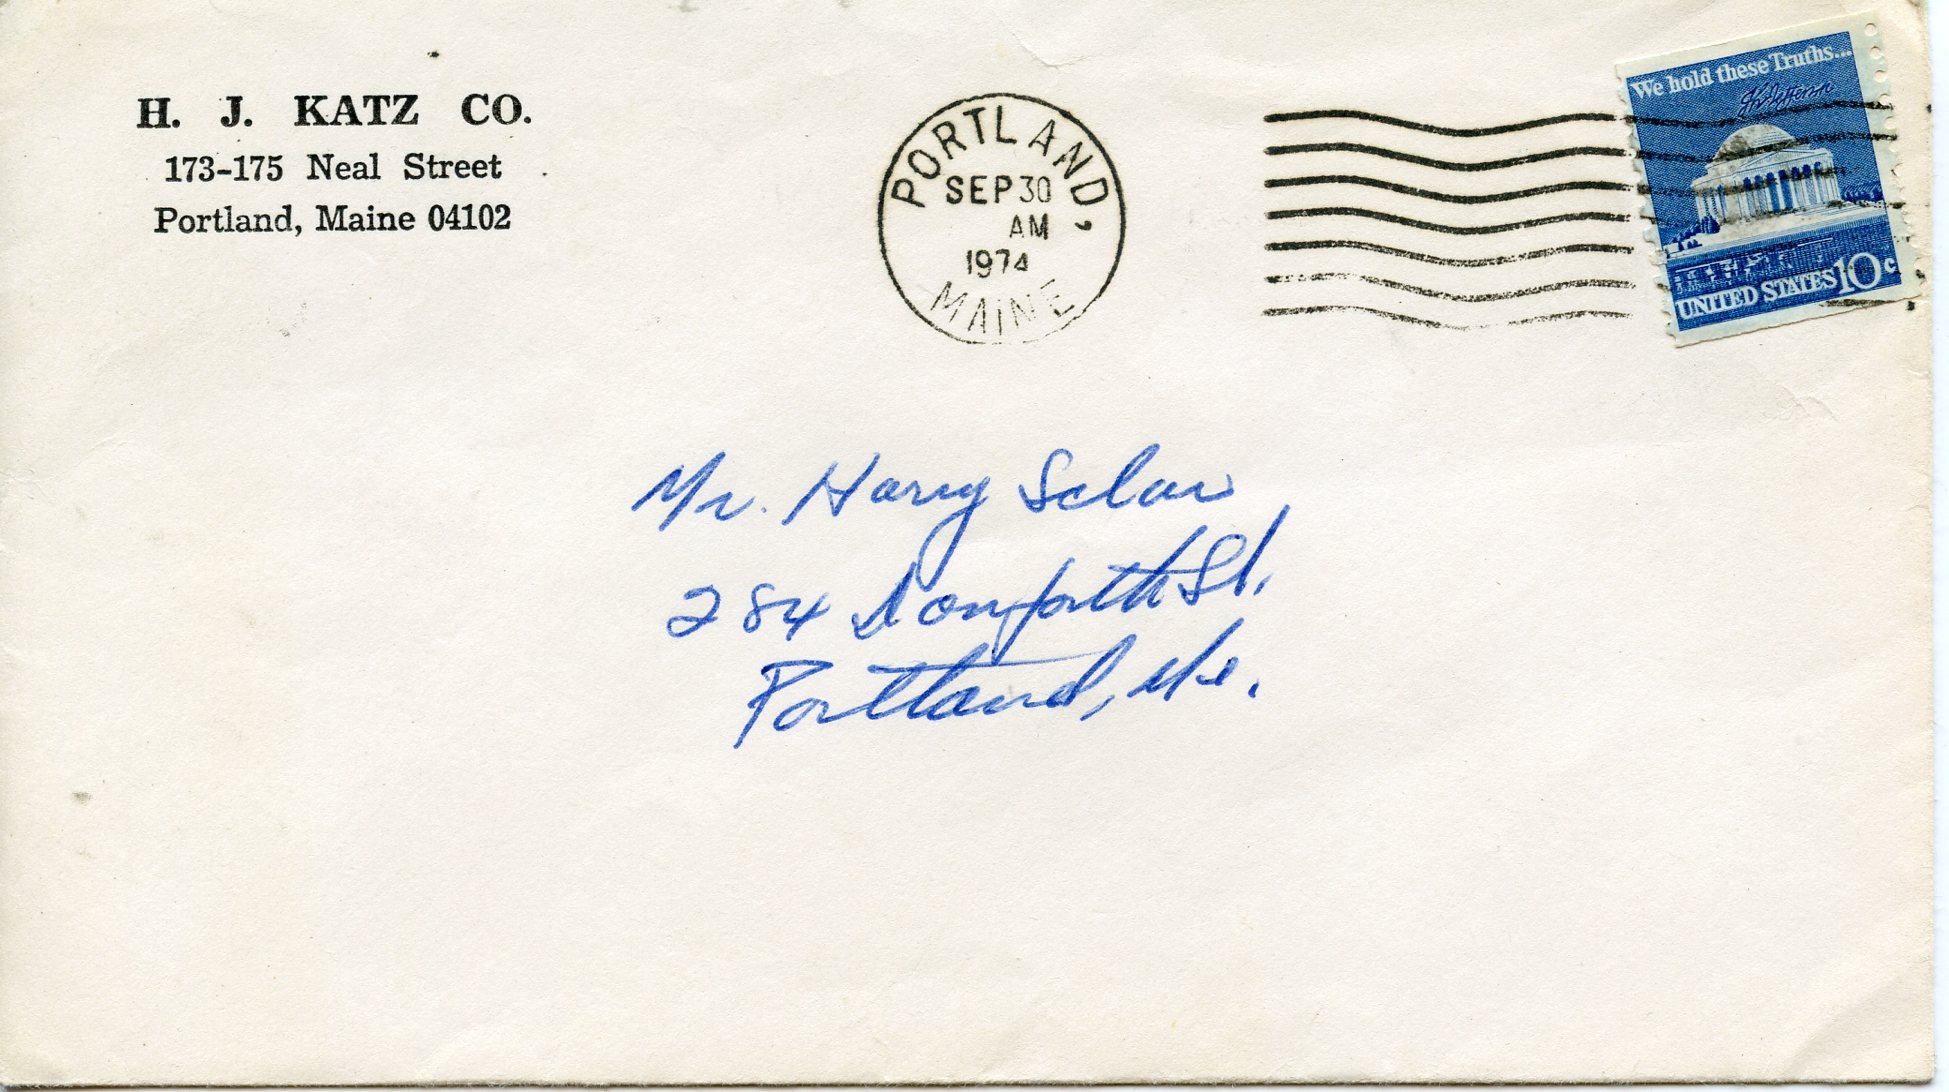 H. J. KATZ CO.
173-175 Neal Street
Portland, Maine 04102
PORTLAND,
SEP 30
AM
1974
MAINE
We hold these Truths...
Th Jefferson
UNITED STATES 10c
Mr. Harry Sclar
284 Danforth St.
Portland, Me.